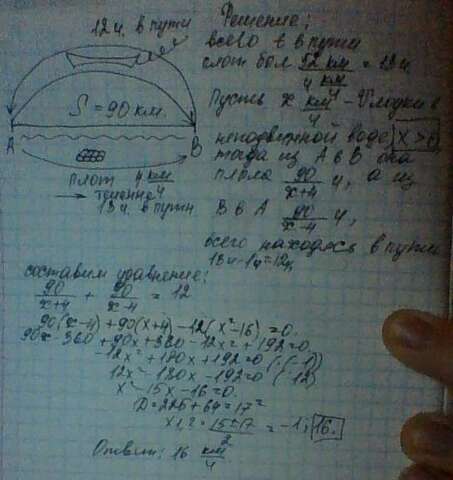 12 ч. в пути
S = 90 км.
A
B
плот 4 км/ч
течение
13 ч. в пути
Решение:
всего в пути
плот был 52 км / 4 км/ч = 13 ч.
Пусть x км/ч - V лодки в
неподвижной воде, x > 0,
тогда из A в B она
плыла 90/(x+4) ч, а из
B в A 90/(x-4) ч,
всего находясь в пути
13ч-1ч=12ч,
составим уравнение:
90/(x+4) + 90/(x-4) = 12
90(x-4)+90(x+4)-12(x²-16)=0.
90x-360+90x+360-12x²+192=0.
-12x²+180x+192=0 |:(-1)
12x²-180x-192=0 (:12)
x²-15x-16=0.
D=225+64=17²
x1,2 = (15±17)/2 = -1; 16.
Ответ: 16 км/ч